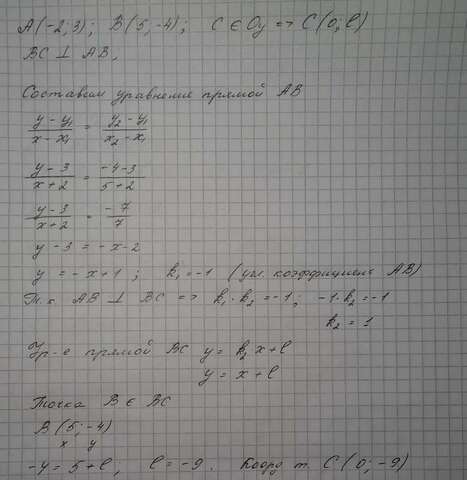 A(-2;3); B(5;-4); C ∈ Oy => C(0;b)
BC ⊥ AB,
Составим уравнение прямой AB
(y - y₁)/(x - x₁) = (y₂ - y₁)/(x₂ - x₁)
(y - 3)/(x + 2) = (-4 - 3)/(5 + 2)
(y - 3)/(x + 2) = -7/7
y - 3 = -x - 2
y = -x + 1 ; k₁ = -1 (угл. коэффициент AB)
Т.к. AB ⊥ BC => k₁ · k₂ = -1; -1 · k₂ = -1
k₂ = 1
Ур-е прямой BC y = k₂ x + b
y = x + b
Точка B ∈ BC
B(5; -4)
x y
-4 = 5 + b, b = -9. Коорд т. C(0; -9)